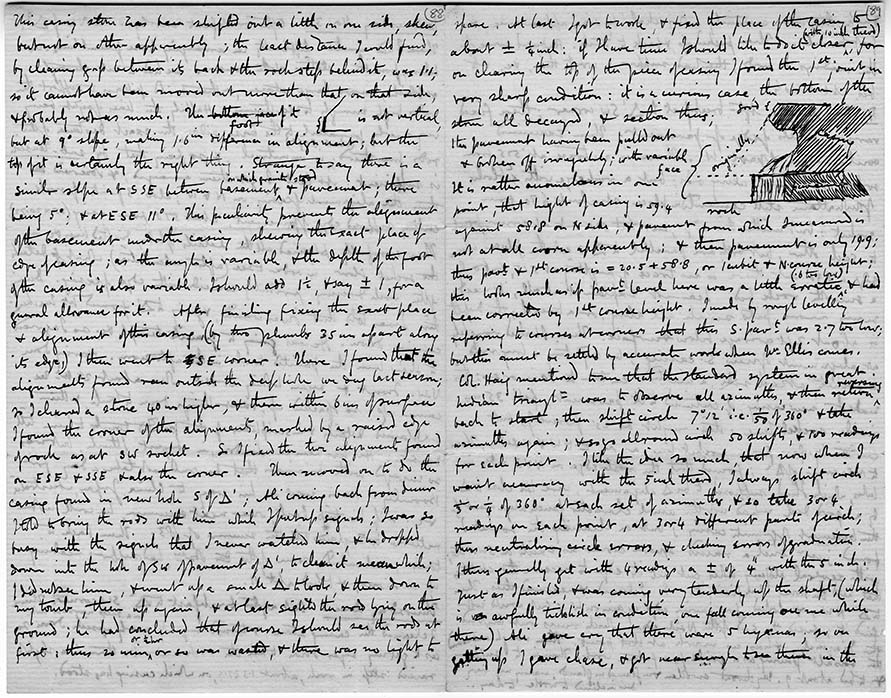 88
This casing stone has been shifted out a little on one side, skew,
but not on other apparently; the least distance I could find,
by clearing gap between its back & the rock step behind it, was 1·1,
so it cannot have been moved out more than that on that side,
& probably not as much. The foot is not vertical,
but at 9° slope, making 1·6 in difference in alignment; but the
top fit is certainly the right thing. Strange to say there is a
similar slope at SSE between basement & pavement, there
being 5°; & at ESE 11°. This peculiarity prevents the alignment
of the basement under the casing, shewing the exact place of
edge of casing; as the angle is variable, & the depth of the foot
of the casing is also variable. I should add 1½, & say ± 1, for a
general allowance for it. After finishing fixing the exact place
& alignment of this casing (by two plumbs 35 in apart along
its edge,) I then went to SE corner. There I found that the
alignments found ran outside the deep hole we dug last season;
so I cleared a stone 40 ins higher, & there within 6 ins of surface
I found the corner of the alignments, marked by a raised edge
of rock as at SW socket. So I fixed the two alignments found
on ESE & SSE & also the corner. Then moved on to do the
casing found in new hole S of Δ; Ali coming back from dinner
I told to bring the rods with him while I put up signals; I was so
busy with the signals that I never watched him, & he dropped
down into the hole of SW of pavement of Δ, to clean it meanwhile;
I did not see him, & went up a small Δ to look & then down to
my tomb, then up again, & at last sighted the rod lying on the
ground; he had concluded that of course I should see the rods at
first; thus 20 min, or so was wasted, & there was no light to
89
spare. At last I got to work, & fixed the place of the casing to
about ± ¼ inch: if I have time I should like to do it closer, for
(with 10 inch theod)
on clearing the top of the piece of casing I found the 1st joint in
very sharp condition: it is a curious case the bottom of the
stone all decayed, & section thus;
good
the pavement having been pulled out
& broken off irregularly; with variable
face
original
It is rather anomalous in one
point, that height of casing is 59·4
rock
against 58·8 on N side, & pavement from which I measured is
not at all worn apparently; & then pavement is only 19·9;
thus pavt & 1st course is = 20·5 + 58·8, or 1 cubit & N. course height;
this looks much as if pavt level here was a little erratic, & had
(·6 too low)
been corrected by 1st course height. I made by rough levelling
referring to courses at corners that this S. pavt was 2·7 too low;
but this must be settled by accurate work when Mr Ellis comes.
Col. Haig mentioned to me that the standard system in great
Indian triangn was to observe all azimuths, & then reversing return
back to start; then shift circle 7° 12' i.e. 1/50 of 360° & take
azimuths again; & so go all round with 50 shifts, & 100 readings
for each point. I like the idea so much that now when I
want accuracy with the 5 inch theod, I always shift circle
1/3 or 1/4 of 360° at each set of azimuths, & so take 3 or 4
readings on each point, at 3 or 4 different parts of circle;
thus neutralising circle errors, & checking errors of graduation.
I thus generally get with 4 readings a ± of 4" with the 5 inch.
Just as I finished & was coming very tenderly up the shaft, (which
is awfully ticklish in condition, one fall coming on me while
there) Ali gave cry that there were 5 hyaenas; so on
getting up I gave chase, & got near enough to see them in the